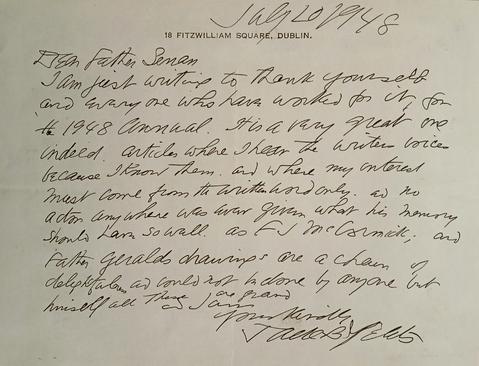 July 20 1948
18 FITZWILLIAM SQUARE, DUBLIN.
Dear Father Senan
I am just writing to thank yourself
and every one who have worked for it, for
the 1948 Annual. It is a very great one
indeed. articles where I hear the writers voice
because I know them. and where my interest
must come from the written word only. ad no
actor anywhere was ever given what his memory
should have so well. as F J McCormick; and
Father Geralds drawings are a chain of
delight ad could not be done by anyone but
himself all these are grand
and I am
Yours kindly
Jack B Yeats